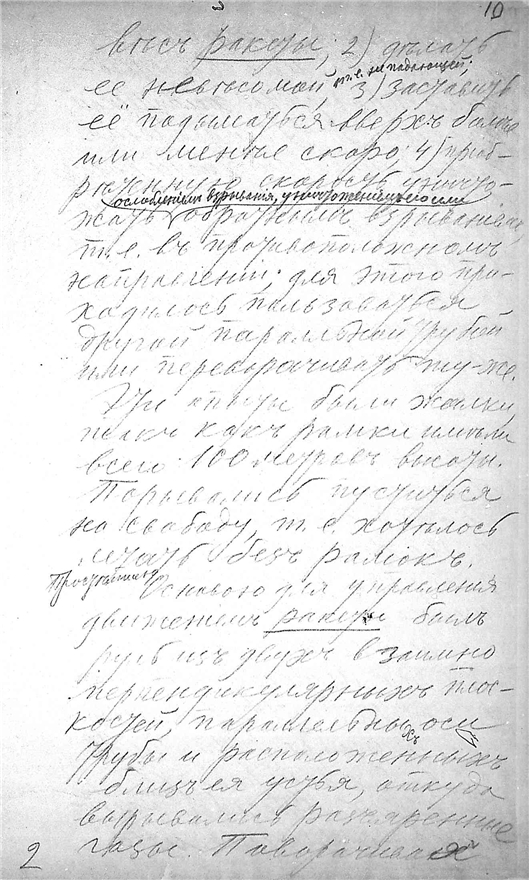 10
вѣсъ ракеты; 2) дѣлать
ее невѣсомой, т.е. не падающей; 3) заставить
её подыматься вверхъ болѣе
или менѣе скоро; 4) приоб-
рѣтенную скорость уничто-
ослабленіемъ взрыванія, уничтоженіемъ его или
жать обратнымъ взрываніемъ,
т.е. въ противоположномъ
направленіи; для этого при-
ходилось пользоваться
другой параллельной трубой
или переворачивать ту-же.
Эти опыты были жалки,
такъ какъ рамки имѣли
всего 100 метровъ высоты.
Порывались пуститься
на свободу, т.е. хотѣлось
летать безъ рамокъ.
Основою для управленія
движеніемъ ракеты былъ
руль изъ двухъ взаимно
перпендикулярныхъ плос-
костей, параллельныхъ оси
трубы и расположенныхъ
близъ ея устья, откуда
вырывались разжаренные
газы. Поворачивая
2